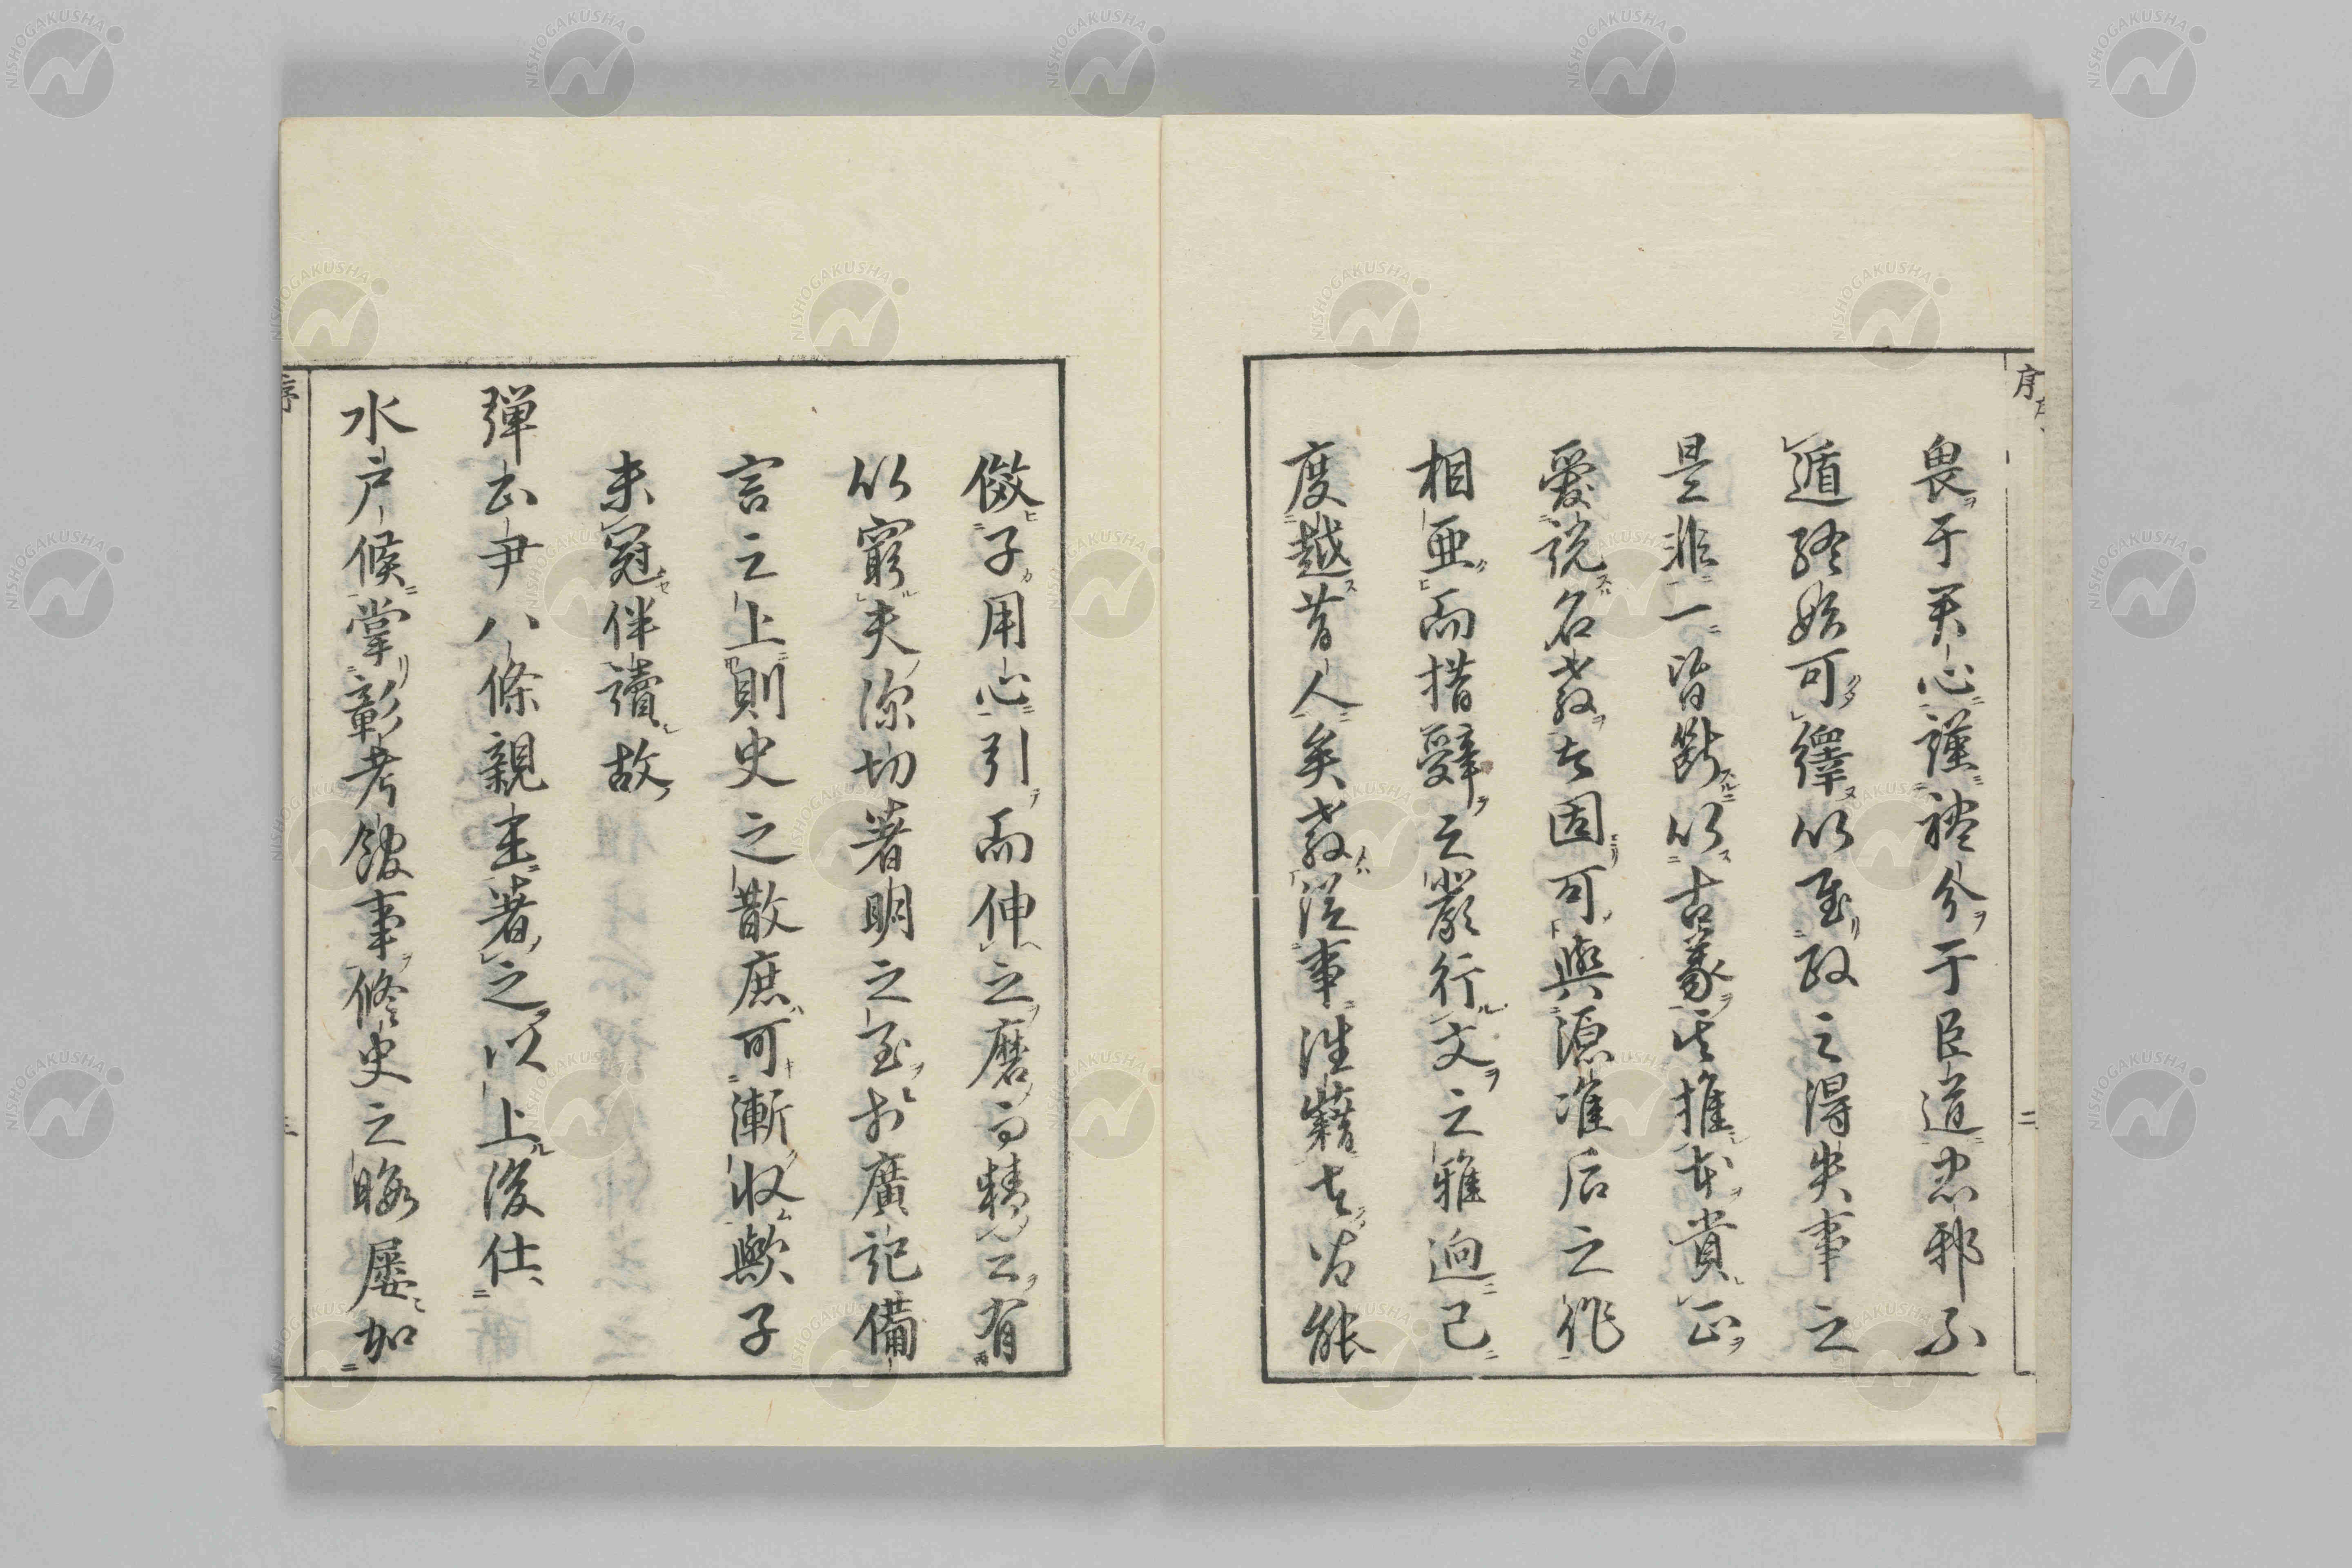 序
二
畏于天心謹禮分于臣道忠邪不
遁終始可繹以至政之得失事之
是非一皆斷以古義其推本貴正
愛説名教者固可與源准后之作
相亜而措辭之嚴行文之雅迥已
度越昔人矣教從事往籍者皆能
倣子用心引而伸之磨而精之有
以窮夫深切著明之至於廣記備
言之上則史之散庶可漸収歟子
未冠伴讀故
弾正尹八條親王著之以上後仕
水戸候掌彰考館事修史之暇屢加
序